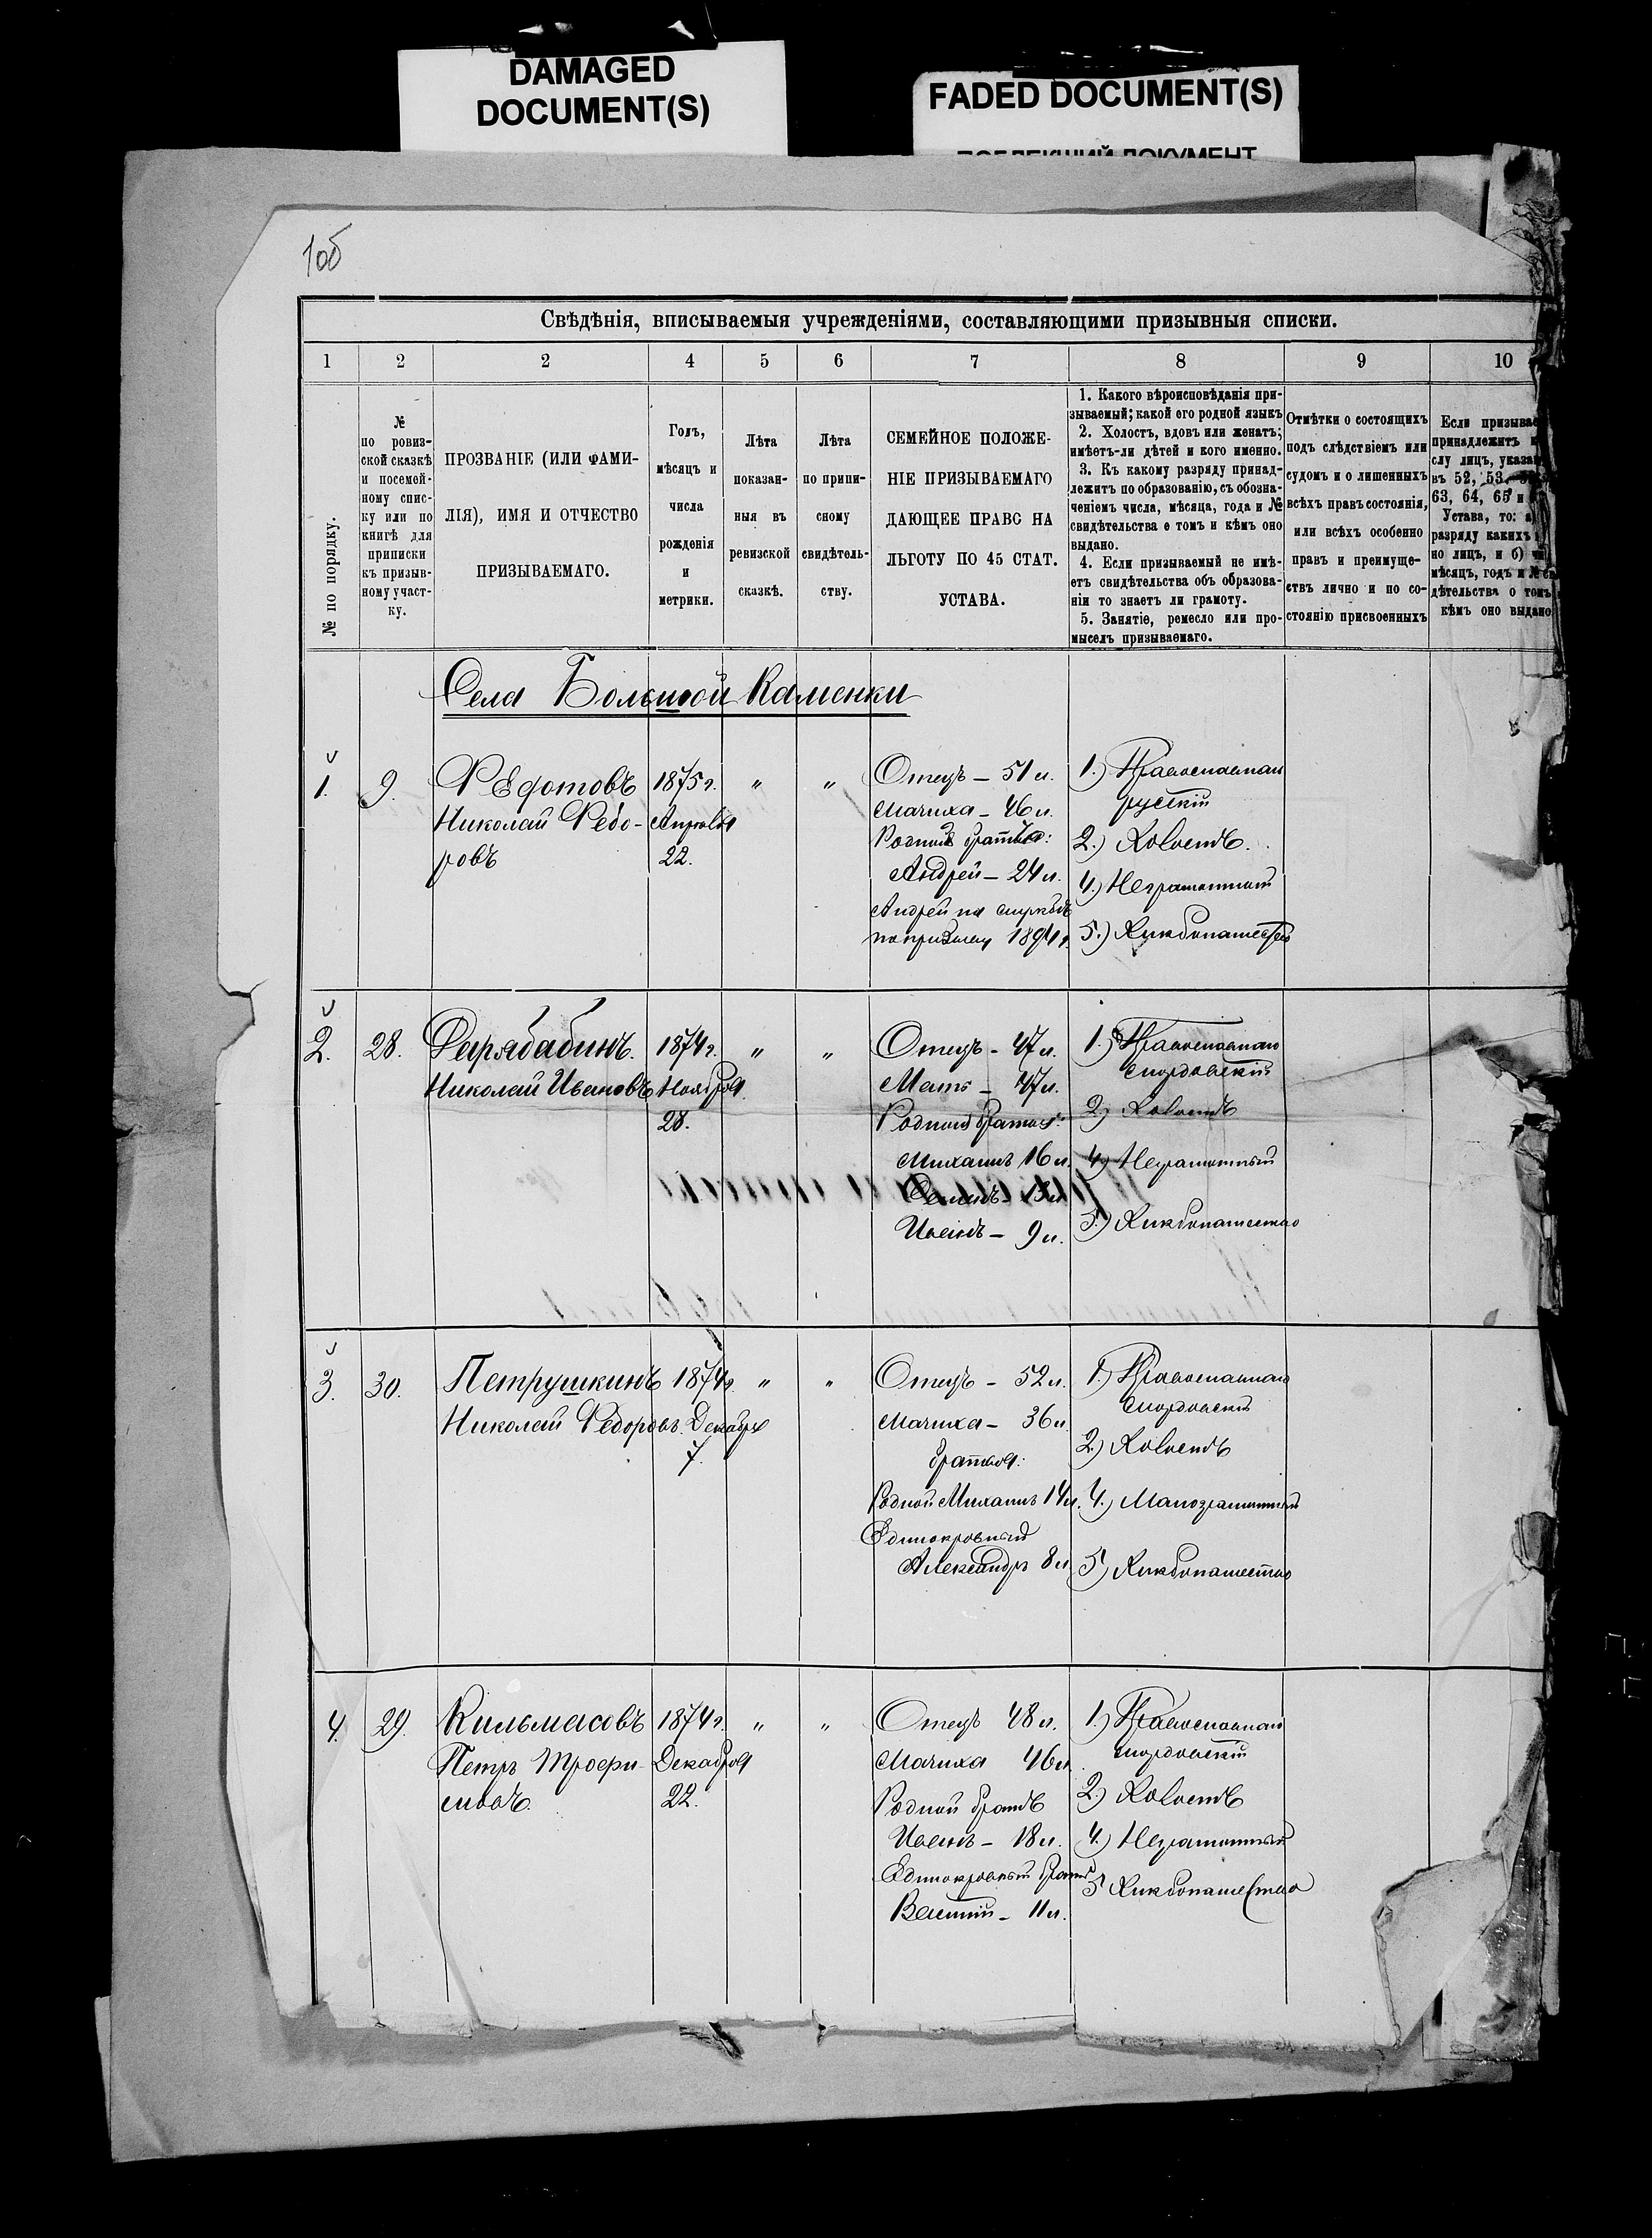 DAMAGED
DOCUMENT(S)
FADED DOCUMENT(S)
106
Свѣдѣнія, вписываемыя учрежденіями, составляющими призывныя списки.
1 2 2 4 5 6 7 8 9 10
№ по порядку.
№
по ровиз-
ской сказкѣ
и посемей-
ному спис-
ку или по
книгѣ для
приписки
къ призыв-
ному участ-
ку.
ПРОЗВАНІЕ (ИЛИ ФАМИ-
ЛІЯ), ИМЯ И ОТЧЕСТВО
ПРИЗЫВАЕМАГО.
Годъ,
мѣсяцъ и
числа
рожденія
и
метрики.
Лѣта
показан-
ныя въ
ревизской
сказкѣ.
Лѣта
по припи-
сному
свидѣтель-
ству.
СЕМЕЙНОЕ ПОЛОЖЕ-
НІЕ ПРИЗЫВАЕМАГО
ДАЮЩЕЕ ПРАВО НА
ЛЬГОТУ ПО 45 СТАТ.
УСТАВА.
1. Какого вѣроисповѣданія при-
зываемый; какой его родной языкъ
2. Холостъ, вдовъ или женатъ;
имѣетъ-ли дѣтей и кого именно.
3. Къ какому разряду принад-
лежитъ по образованію, съ обозна-
ченіемъ числа, мѣсяца, года и №
свидѣтельства о томъ и кѣмъ оно
выдано.
4. Если призываемый не имѣ-
етъ свидѣтельства объ образова-
ніи то знаетъ ли грамоту.
5. Занятіе, ремесло или про-
мыселъ призываемаго.
Отмѣтки о состоящихъ
подъ слѣдствіемъ или
судомъ и о лишенныхъ
всѣхъ правъ состоянія,
или всѣхъ особенно
правъ и преимуще-
ствъ лично и по со-
стоянію присвоенныхъ
Если призывае
принадлежитъ
слу лицъ, указа
въ 52, 53
63, 64, 65 и
Устава, то: а)
разряду какихъ
но лицъ, и б)
мѣсяцъ, годъ и №
дѣтельства о томъ
кѣмъ оно выдано
Села Большой Каменки
1. 9.
Федотовъ
Николай Федо-
ровъ
1875 г.
Апрѣля
22.
" "
Отецъ – 51 л.
Мачиха – 46 л.
Родной братья:
Андрей – 24 л.
Андрей на службѣ
по призыву 1894 г.
1.) Православнаго
русскій
2.) Холостъ.
4.) Неграмотный
5.) Хлѣбопашество
2. 28.
Дарябабинъ.
Николай Ивановъ
1874 г.
Ноября
28.
" "
Отецъ – 47 л.
Мать – 47 л.
Родной братья:
Михаилъ 16 л.
Иванъ – 9 л.
1.) Православнаго
мордовскій
2.) Холостъ
4.) Неграмотный
5.) Хлѣбопашество
3. 30.
Петрушкинъ
Николай Федоровъ.
1874 г.
Декабря
7.
" "
Отецъ – 52 л.
Мачиха – 36 л.
братья:
Родной Михаилъ 14 л.
Единокровный
Александръ 8 л.
1.) Православнаго
мордовскій
2.) Холостъ
4.) Малограмотный
5.) Хлѣбопашество
4. 29.
Кильмасовъ
Петръ Трофи-
мовъ.
1874 г.
Декабря
22.
" "
Отецъ 48 л.
Мачиха 46 л.
Родной братъ
Иванъ – 18 л.
Единокровный братъ
Василій – 11 л.
1.) Православнаго
мордовскій
2.) Холостъ
4.) Неграмотный
5 Хлѣбопашество